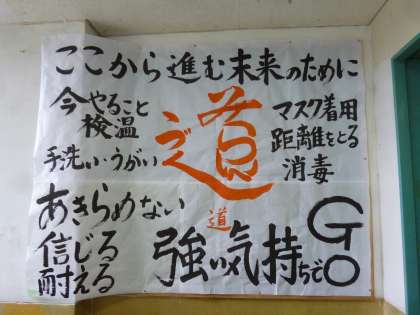 ここから進む未来のために
今やること
検温
手洗い・うがい
マスク着用
距離をとる
消毒
道
あきらめない
信じる
耐える
強い気持ちでGO